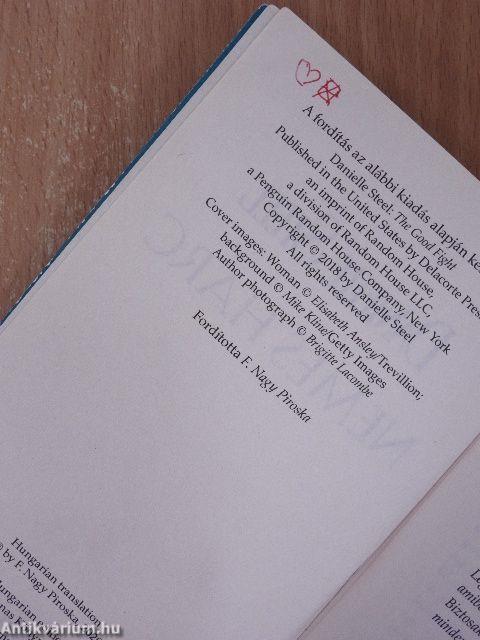 A fordítás az alábbi kiadás alapján
Danielle Steel: The Good Fight
Published in the United States by Delacorte Press
an imprint of Random House,
a division of Random House LLC,
a Penguin Random House Company, New York
Copyright © 2018 by Danielle Steel
All rights reserved
Cover images: Woman © Elisabeth Ansley/Trevillion;
background © Mike Kline/Getty Images
Author photograph © Brigitte Lacombe
Fordította F. Nagy Piroska
Hungarian translation
© by F. Nagy Piroska
Hungarian
NEMES HARC
Biztosan
Antikvárium.hu